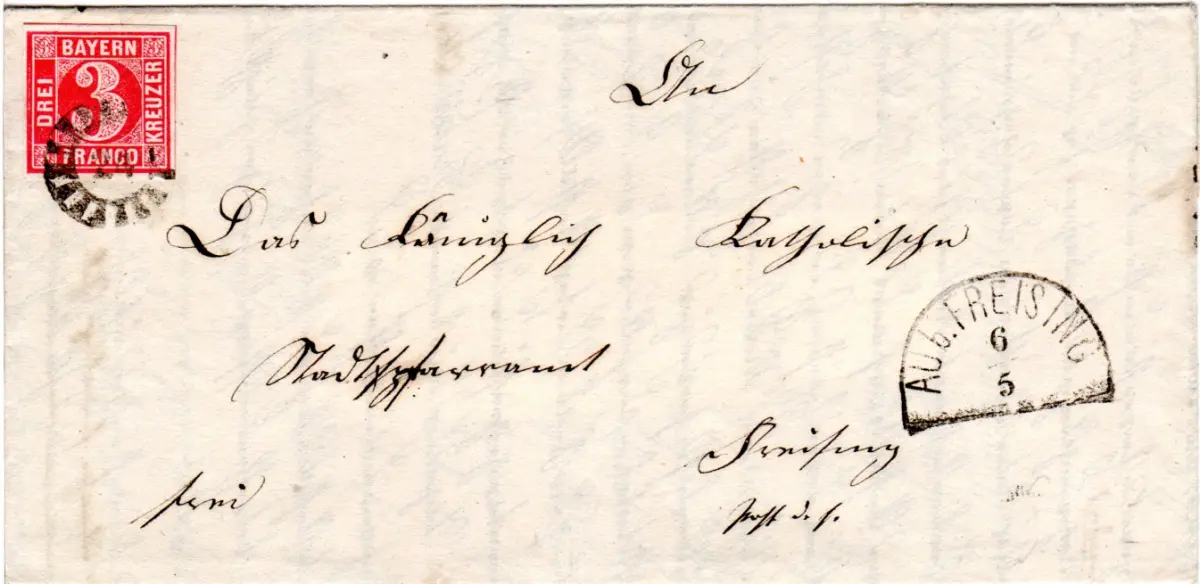 BAYERN
DREI
3
KREUZER
FRANCO
An
Das Königlich Katholische
AU b. FREISING
6
5
Stadtpfarramt
Freising
frei
Post d. f.